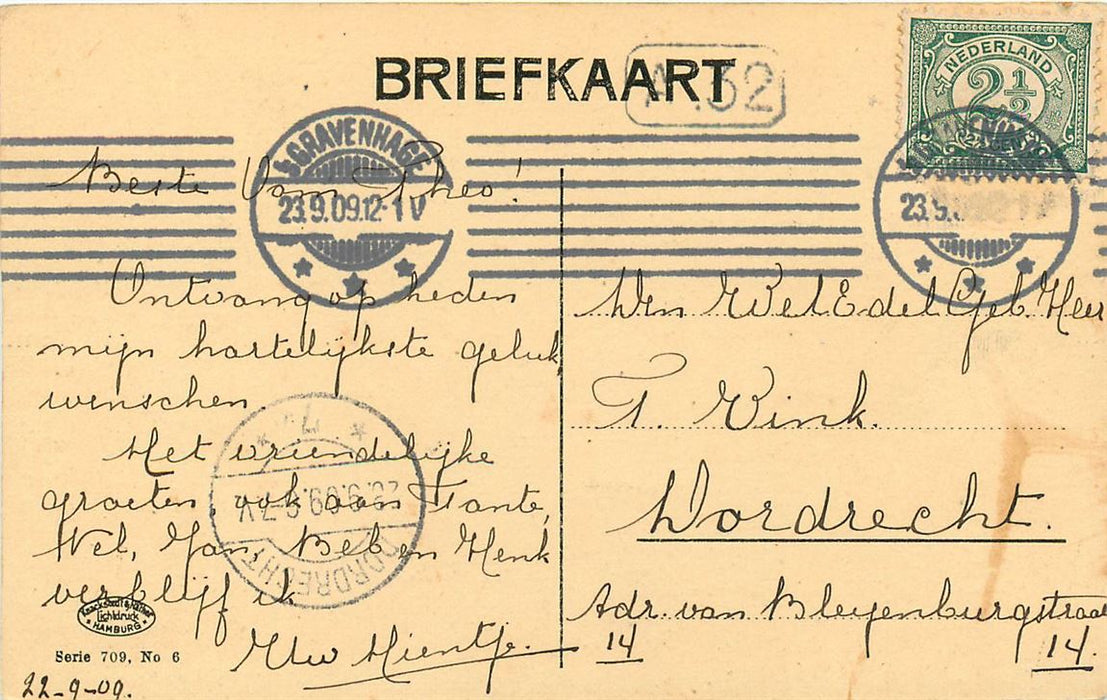 BRIEFKAART
32
NEDERLAND
2½
's-GRAVENHAGE
23.9.09.12-1V
23.9.
Beste Oom Theo!
Ontvang op heden
mijn hartelijkste geluk,
wenschen
Met vriendelijke
groeten, ook aan Tante,
Wel, Jan, Beb en Henk
verblijf ik
Uw Mientje.
22-9-09.
DORDRECHT
23.9.09.6-7V
Knackstedt & Näther
Lichtdruck
HAMBURG
Serie 709, No 6
Den WelEdelGeb. Heer
T. Vink.
Dordrecht.
Adr. van Bleyenburgstraat
14 14.